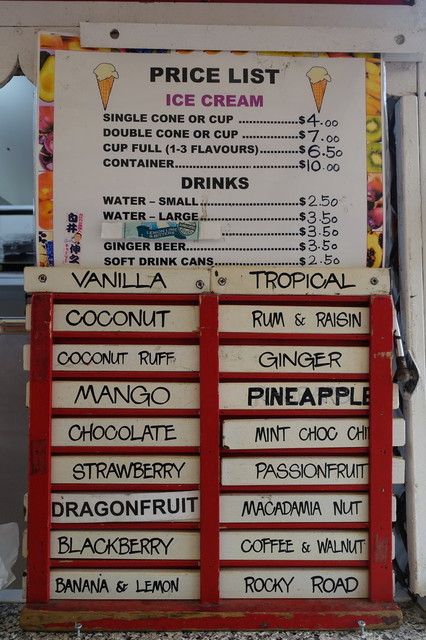 PRICE LIST
ICE CREAM
SINGLE CONE OR CUP ................$4.00
DOUBLE CONE OR CUP ................$7.00
CUP FULL (1-3 FLAVOURS)..........$6.50
CONTAINER................................$10.00
DRINKS
WATER – SMALL.........................$2.50
WATER – LARGE.........................$3.50
$3.50
GINGER BEER.............................$3.50
SOFT DRINK CANS......................$2.50
VANILLA TROPICAL
COCONUT RUM & RAISIN
COCONUT RUFF GINGER
MANGO PINEAPPLE
CHOCOLATE MINT CHOC CHI
STRAWBERRY PASSIONFRUIT
DRAGONFRUIT MACADAMIA NUT
BLACKBERRY COFFEE & WALNUT
BANANA & LEMON ROCKY ROAD